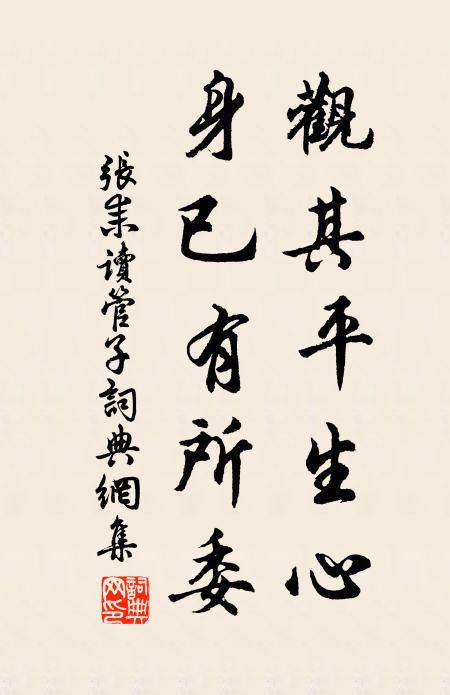 觀其平生心
身已有所委
張耒讀管子詞典網集
詞典網印